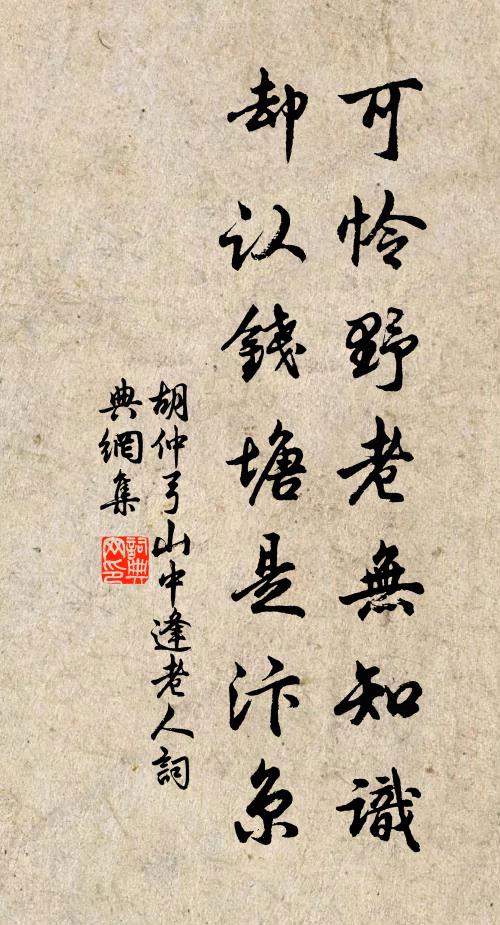 可怜野老無知識
却认錢塘是汴京
胡仲弓山中逢老人詞
典網集
詞典网印